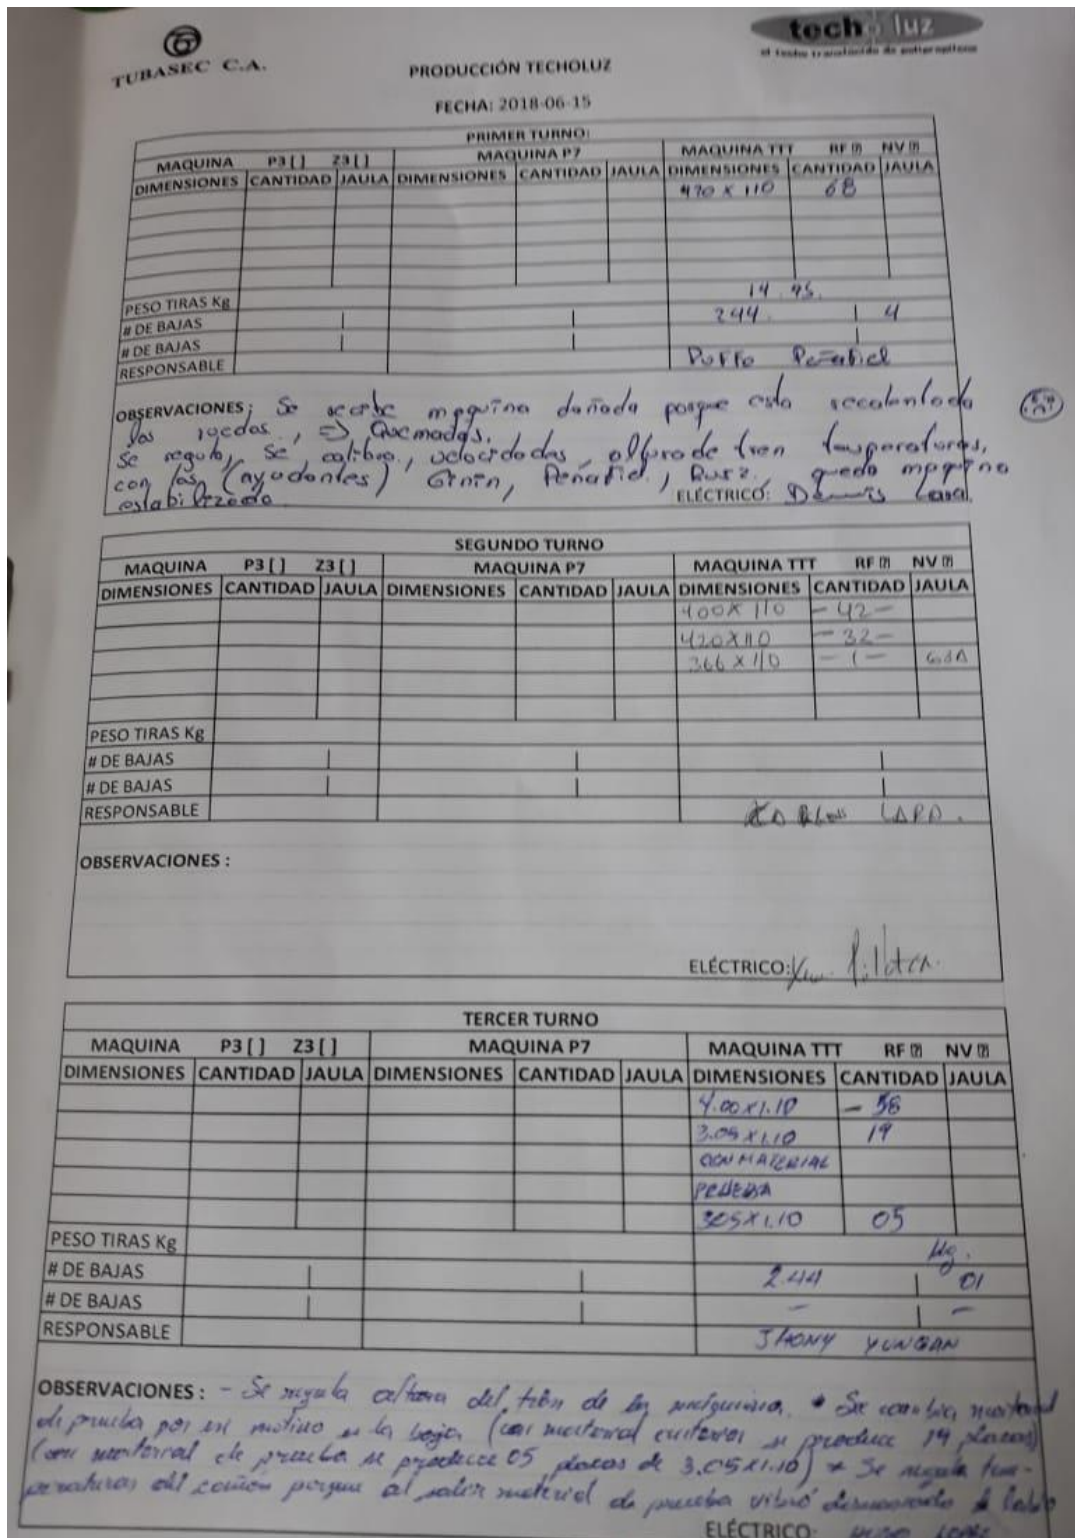 TUBASEC C.A.
techoluz
el techo translúcido de polipropileno
PRODUCCIÓN TECHOLUZ
FECHA: 2018-06-15
PRIMER TURNO:
MAQUINA P3 [ ] Z3 [ ] MAQUINA P7 MAQUINA TTT RF NV
DIMENSIONES CANTIDAD JAULA DIMENSIONES CANTIDAD JAULA DIMENSIONES CANTIDAD JAULA
470 X 110 68
PESO TIRAS Kg 14.95.
# DE BAJAS | | 244. | 4
# DE BAJAS | | |
RESPONSABLE Peñafiel
OBSERVACIONES; Se recibe maquina dañada porque esta recalentada
las ruedas., => Quemadas.
se regula, se calibra, velocidades, altura de tren temperaturas,
con los (ayudantes) Peñafiel, Ruiz, queda maquina
estabilizada ELÉCTRICO: Dennis Lara.
SEGUNDO TURNO
MAQUINA P3 [ ] Z3 [ ] MAQUINA P7 MAQUINA TTT RF NV
DIMENSIONES CANTIDAD JAULA DIMENSIONES CANTIDAD JAULA DIMENSIONES CANTIDAD JAULA
400X110 -42-
420X110 -32-
366X110 -1-
PESO TIRAS Kg
# DE BAJAS | | |
# DE BAJAS | | |
RESPONSABLE LARA.
OBSERVACIONES :
ELÉCTRICO:
TERCER TURNO
MAQUINA P3 [ ] Z3 [ ] MAQUINA P7 MAQUINA TTT RF NV
DIMENSIONES CANTIDAD JAULA DIMENSIONES CANTIDAD JAULA DIMENSIONES CANTIDAD JAULA
4.00x1.10 - 58
3.05x1.10 19
CON MATERIAL
PRUEBA
305x1.10 05
PESO TIRAS Kg Kg.
# DE BAJAS | | 2.44 | 01
# DE BAJAS | | - | -
RESPONSABLE JHONY YUNGAN
OBSERVACIONES : - Se regula altura del tren de la maquina. * Se cambia material
de prueba por en la baja (con material se produce 19 placas)
(con material de prueba se produce 05 placas de 3.05x1.10) * Se regula tem-
peraturas del porque al salir material de prueba
ELÉCTRICO: